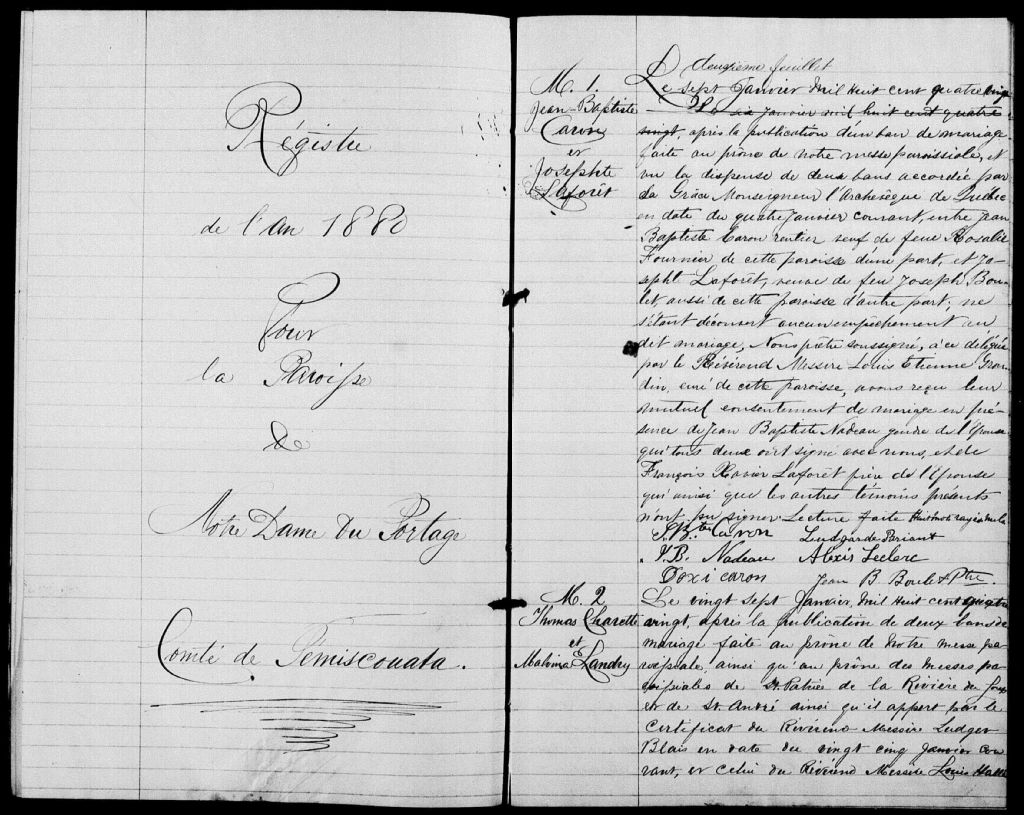 Régistre
de l'An 1880
Pour
la Paroisse
de
Notre Dame du Portage
Comté de Témiscouata.
deuxieme feuillet
M. 1.
Jean-Baptiste
Caron
et
Josephte
Laforêt
Le sept Janvier Mil Huit cent quatre vingt
six Janvier mil huit cent quatre
vingt, après la publication d'un ban de mariage
faite au prône de notre messe paroissiale, et
vu la dispense de deux bans accordée par
Sa Grâce Monseigneur l'Archevêque de Québec
en date du quatre Janvier courant, entre Jean
Baptiste Caron rentier veuf de feue Rosalie
Fournier de cette paroisse d'une part, et Jo-
sepht Laforêt, veuve de feu Joseph Bou-
let, aussi de cette paroisse d'autre part; ne
s'étant découvert aucun empêchement au
dit mariage, Nous prêtre soussigné, à ce délégué
par le Révérend Messire Louis Etienne Gron-
din, curé de cette paroisse, avons reçu leur
mutuel consentement de mariage en pré-
sence de Jean Baptiste Nadeau gendre de l'Epouse
qui tous deux ont signé avec nous, et de
François Xavier Laforêt frère de l'Epouse
qui ainsi que les autres témoins présents
n'ont pu signer. Lecture faite
J. Bte Caron Ludgarde Pariant
J. B. Nadeau Alexis Leclerc
Doxi caron Jean B Boulet Ptre.
M. 2
Thomas Charette
et
Malvina E. Landry
Le vingt sept Janvier, Mil Huit cent quatre
vingt, après la Publication de deux bans de
mariage faite au prône de Notre messe pa-
roissiale ainsi qu'au prône des messes pa-
roissiales de St. Patrice de la Rivière du Loup
et de St. André ainsi qu'il appert par le
Certificat du Révérend Messire Ludger
Blais en date du vingt cinq Janvier cou
rant, et celui du Révérend Messire Louis